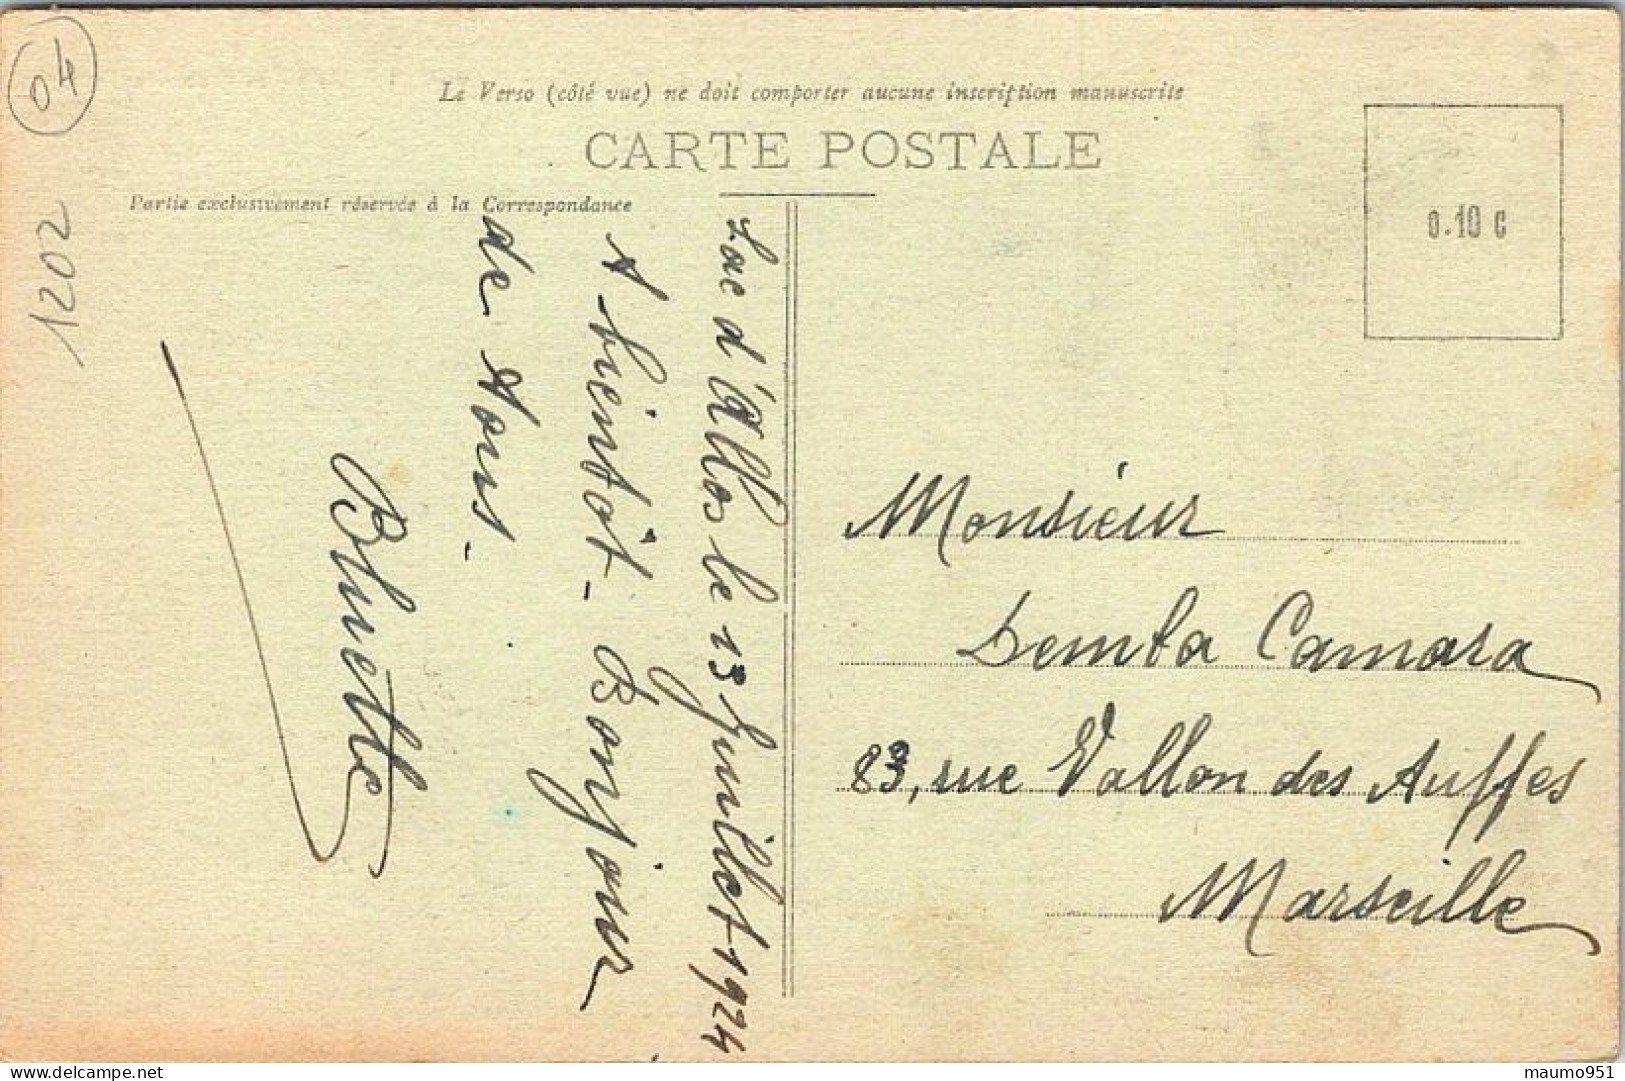 04
1202
Le Verso (côté vue) ne doit comporter aucune inscription manuscrite
CARTE POSTALE
Partie exclusivement réservée à la Correspondance
0.10 C
Lac d'Allos le 13 Juillet 1924
A bientôt - Bonjour
de tous -
Bluette
Monsieur
Demba Camara
83, rue Vallon des Auffes
Marseille
maumo951